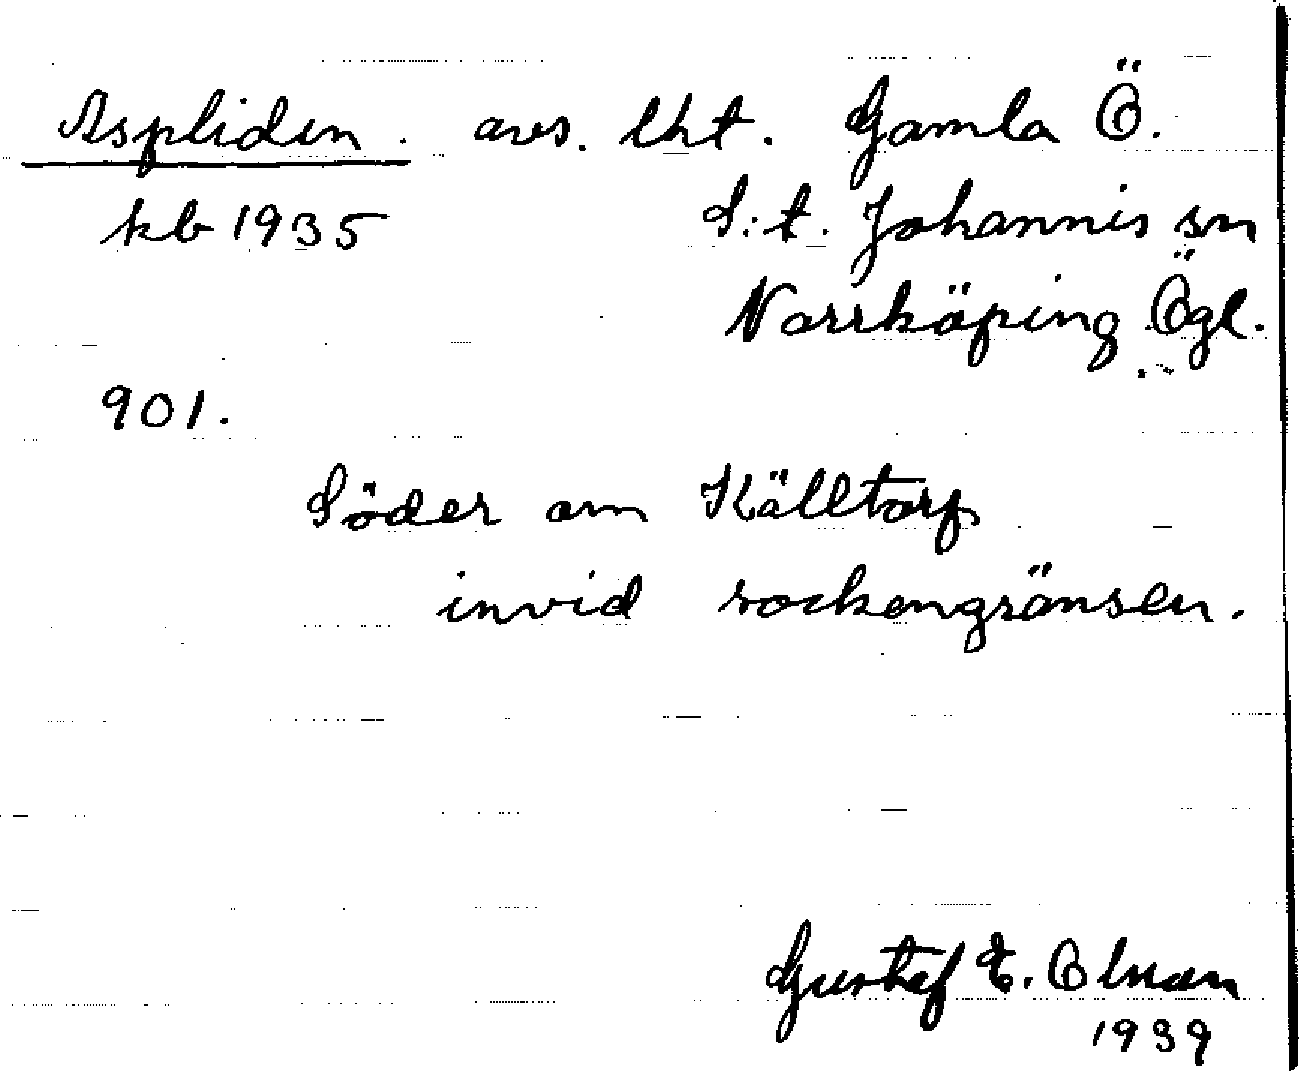 Aspliden. avs. lht. Gamla Ö.
kb 1935 S:t. Johannis sn
Norrköping Ögl.
901.
Söder om Källtorp
invid sockengränsen.
Gustef E. Olman
1939